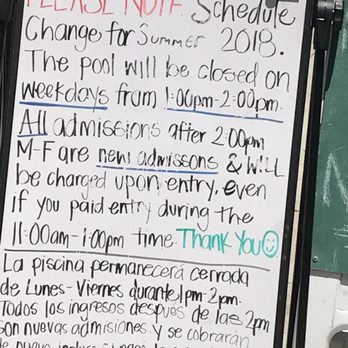 PLEASE NOTE: Schedule
Change for Summer 2018.
The pool will be closed on
weekdays from 1:00pm-2:00pm.
All admissions after 2:00pm
M-F are new admissons & will
be charged upon entry, even
if you paid entry during the
11:00am-1:00pm time. Thank You
La piscina permanecerá cerrada
de Lunes-Viernes durante 1pm-2pm.
Todos los ingresos despues de las 2pm
son nuevas admisiones y se cobrarán